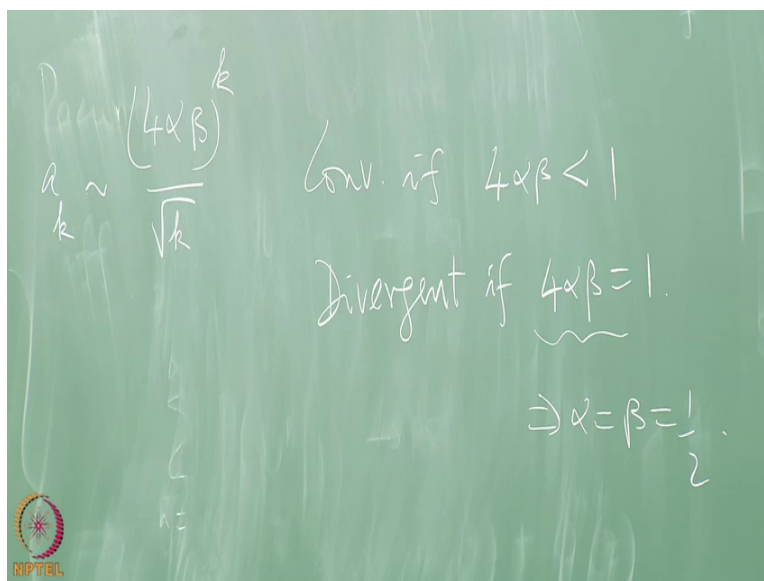 a_k ~ (4αβ)^k / √k
Conv. if 4αβ < 1
Divergent if 4αβ = 1.
⇒ α = β = 1/2.
NPTEL